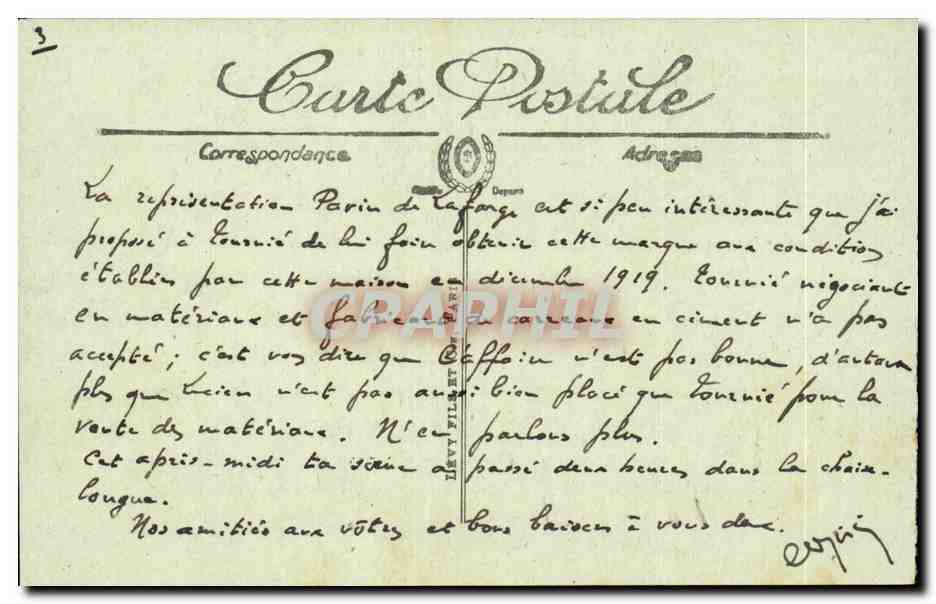 3
Carte Postale
Correspondance Adresse
La représentation Pavin de Lafarge est si peu intéressante que j'ai
proposé à Tournié de lui faire obtenir cette marque aux conditions
établies par cette maison en décembre 1919. Tournié négociant
en matériaux et fabricant de carreaux en ciment n'a pas
accepté ; c'est vous dire que l'affaire n'est pas bonne, d'autant
plus que Lucien n'est pas aussi bien placé que Tournié pour la
vente des matériaux. N'en parlons plus.
Cet après-midi ta a passé deux heures dans la chaise-
longue.
Nos amitiés aux vôtres et bons baisers à vous deux.
LEVY FILS ET PARIS
GRAPHIL